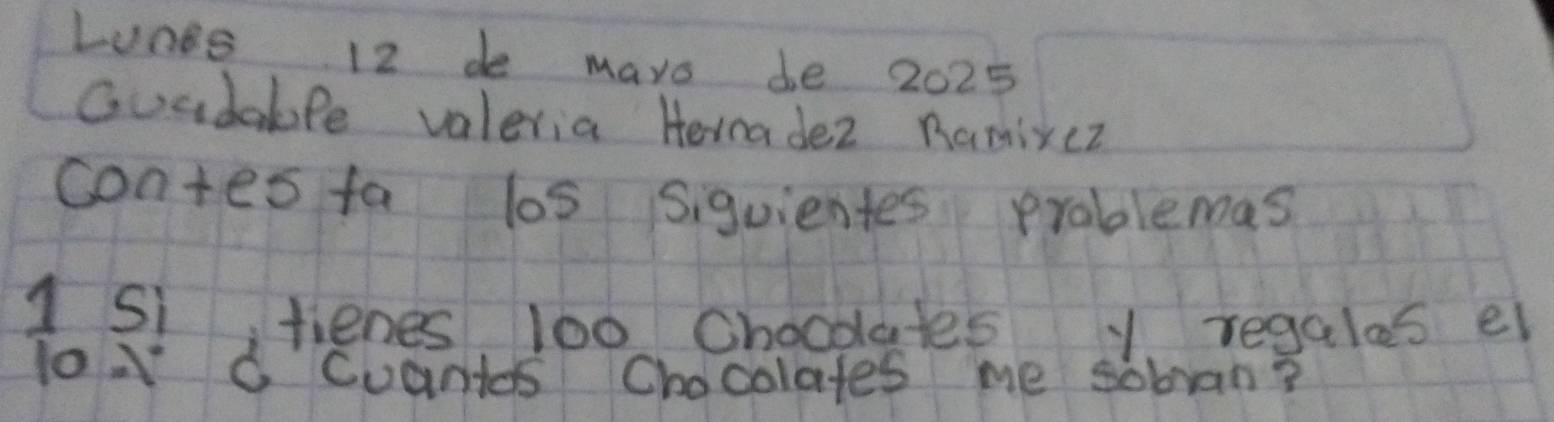 Lunes 12 de mayo de 2025
Guadalupe valeria Hernadez Ramirez
contesta los siguientes problemas
1 Si tienes 100 chocolates y regalas el
10% ¿ Cuantos chocolates me sobran?